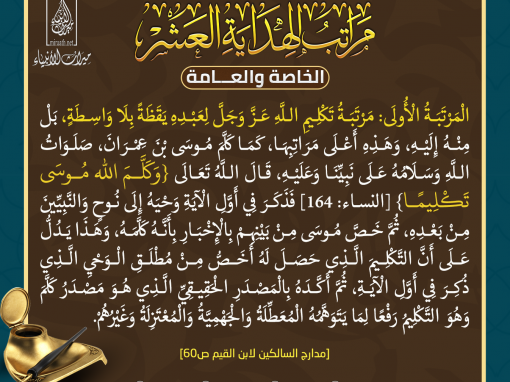 مَرَاتِبُ الهِدَايَةِ العَشْرِ
ميراث الأنبياء
miraath.net
الخاصة والعــامة
الْمَرْتَبَةُ الْأُولَى: مَرْتَبَةُ تَكْلِيمِ اللهِ عَزَّ وَجَلَّ لِعَبْدِهِ يَقَظَةً بِلَا وَاسِطَةٍ، بَلْ
مِنْهُ إِلَيْهِ، وَهَذِهِ أَعْلَى مَرَاتِبِهَا، كَمَا كَلَّمَ مُوسَى بْنَ عِمْرَانَ، صَلَوَاتُ
اللهِ وَسَلَامُهُ عَلَى نَبِيِّنَا وَعَلَيْهِ، قَالَ اللهُ تَعَالَى {وَكَلَّمَ اللهُ مُوسَى
تَكْلِيمًا} [النساء: 164] فَذَكَرَ فِي أَوَّلِ الْآيَةِ وَحْيَهُ إِلَى نُوحٍ وَالنَّبِيِّينَ
مِنْ بَعْدِهِ، ثُمَّ خَصَّ مُوسَى مِنْ بَيْنِهِمْ بِالْإِخْبَارِ بِأَنَّهُ كَلَّمَهُ، وَهَذَا يَدُلُّ
عَلَى أَنَّ التَّكْلِيمَ الَّذِي حَصَلَ لَهُ أَخَصُّ مِنْ مُطْلَقِ الْوَحْيِ الَّذِي
ذُكِرَ فِي أَوَّلِ الْآيَةِ، ثُمَّ أَكَّدَهُ بِالْمَصْدَرِ الْحَقِيقِيِّ الَّذِي هُوَ مَصْدَرُ كَلَّمَ
وَهُوَ التَّكْلِيمُ رَفْعًا لِمَا يَتَوَهَّمُهُ الْمُعَطِّلَةُ وَالْجَهْمِيَّةُ وَالْمُعْتَزِلَةُ وَغَيْرُهُمْ.
[مدارج السالكين لابن القيم ص60]